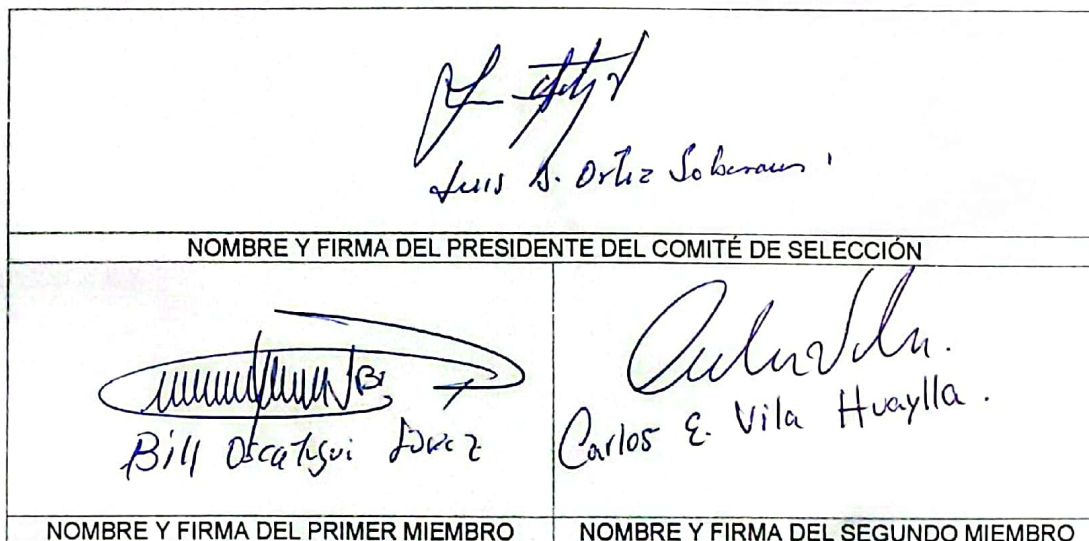 Luis A. Ortiz
NOMBRE Y FIRMA DEL PRESIDENTE DEL COMITÉ DE SELECCIÓN
Bill
Carlos E. Vila Huaylla.
NOMBRE Y FIRMA DEL PRIMER MIEMBRO
NOMBRE Y FIRMA DEL SEGUNDO MIEMBRO